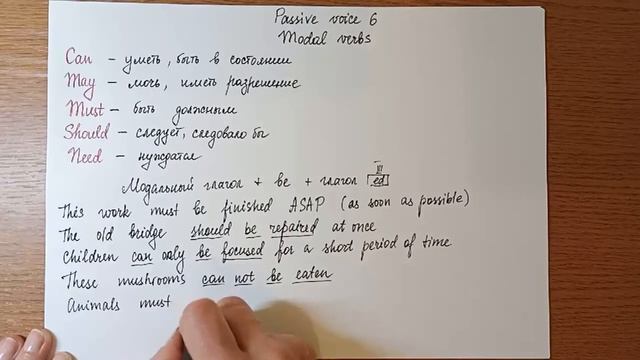 Passive voice 6
Modal verbs
Can – уметь, быть в состоянии
May – мочь, иметь разрешение
Must – быть должным
Should – следует, следовало бы
Need – нуждаться
Модальный глагол + be + глагол III ed
This work must be finished ASAP (as soon as possible)
The old bridge should be repaired at once
Children can only be focused for a short period of time
These mushrooms can not be eaten
Animals must